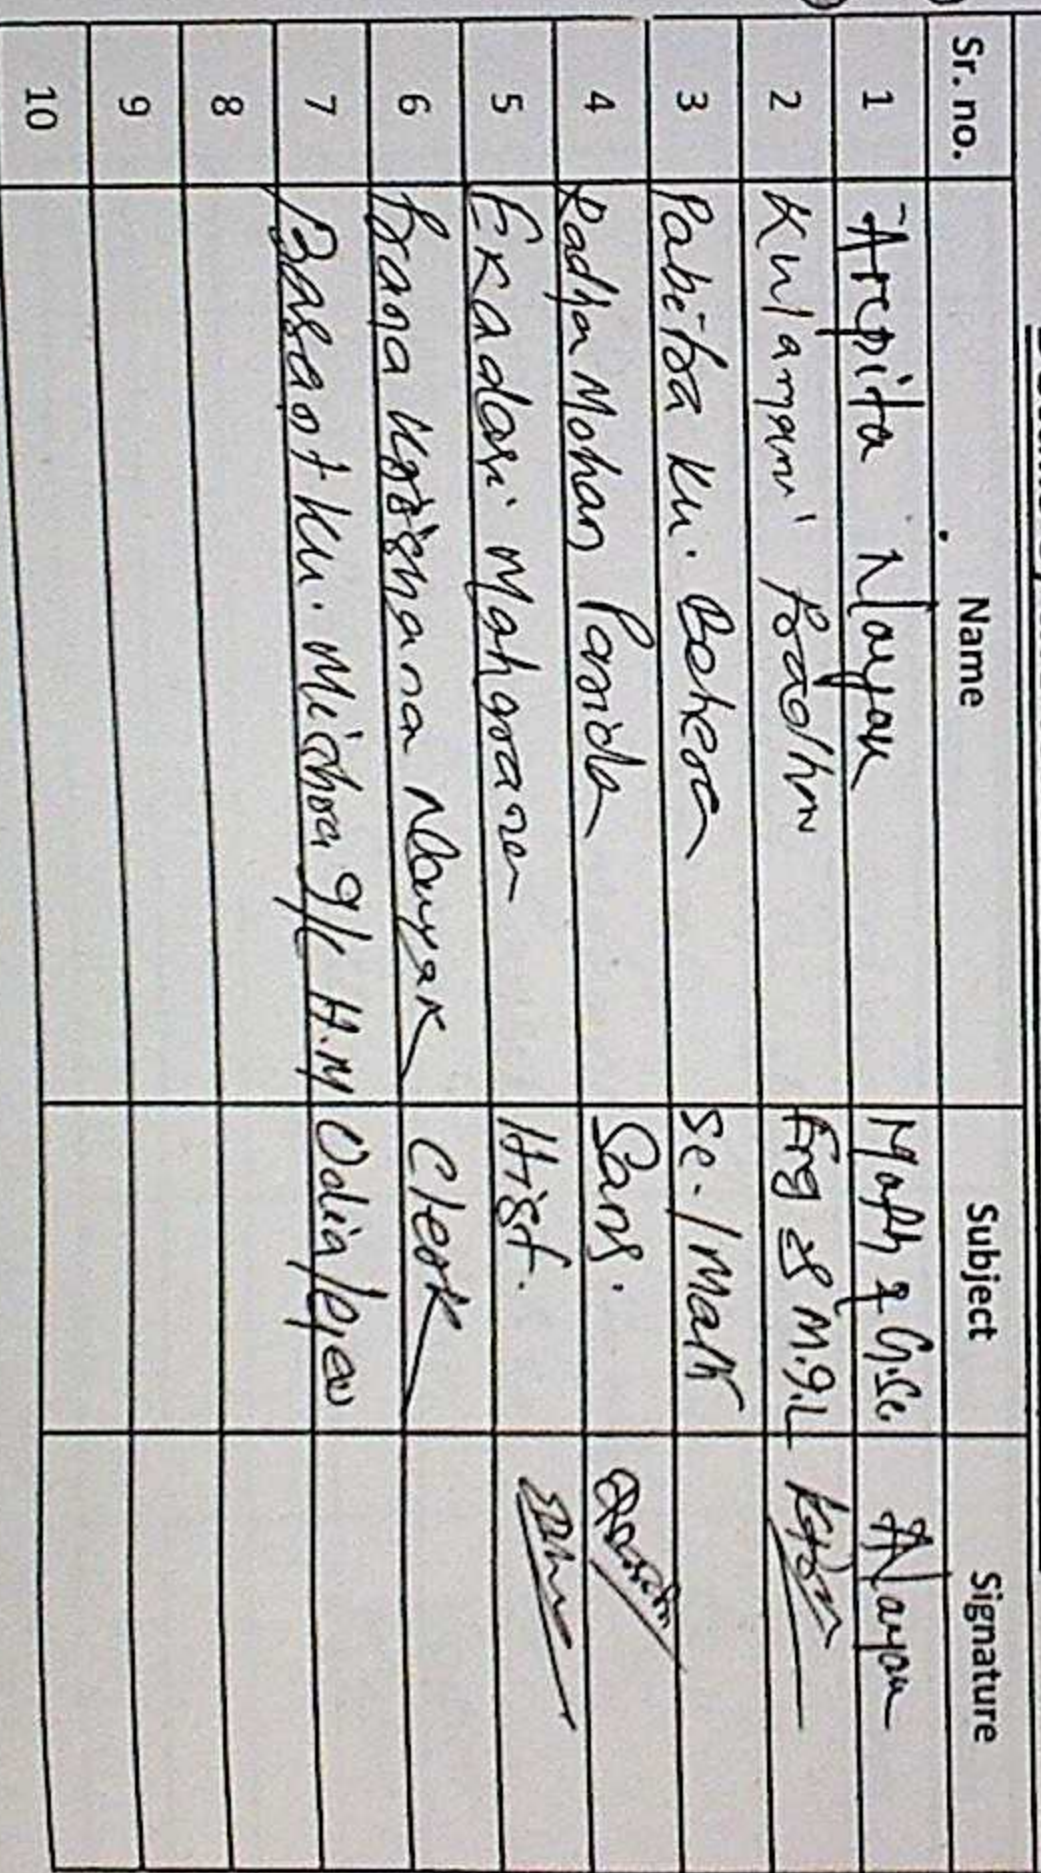 Sr. no. Name Subject Signature
1 Arpita Nayak Math & G.Sc. ANayak
2 Kulamani Pradhan Eng & M.I.L
3 Pabitra Ku. Behera Sc./Math
4 Radha Mohan Parida Sans.
5 Ekadasi Maharana Hist.
6 Rama Krishana Nayak Clerk
7 Basant Ku. Mishra I/C H.M Odia/
8
9
10